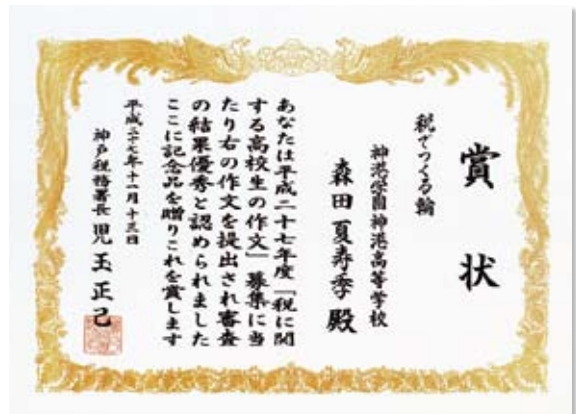 賞状
税でつくる輪
神港学園神港高等学校
森田夏寿季 殿
あなたは平成二十七年度「税に関
する高校生の作文」募集に当
たり右の作文を提出され審査
の結果優秀と認められました
ここに記念品を贈りこれを賞します
平成二十七年十一月十三日
神戸税務署長 児玉正己